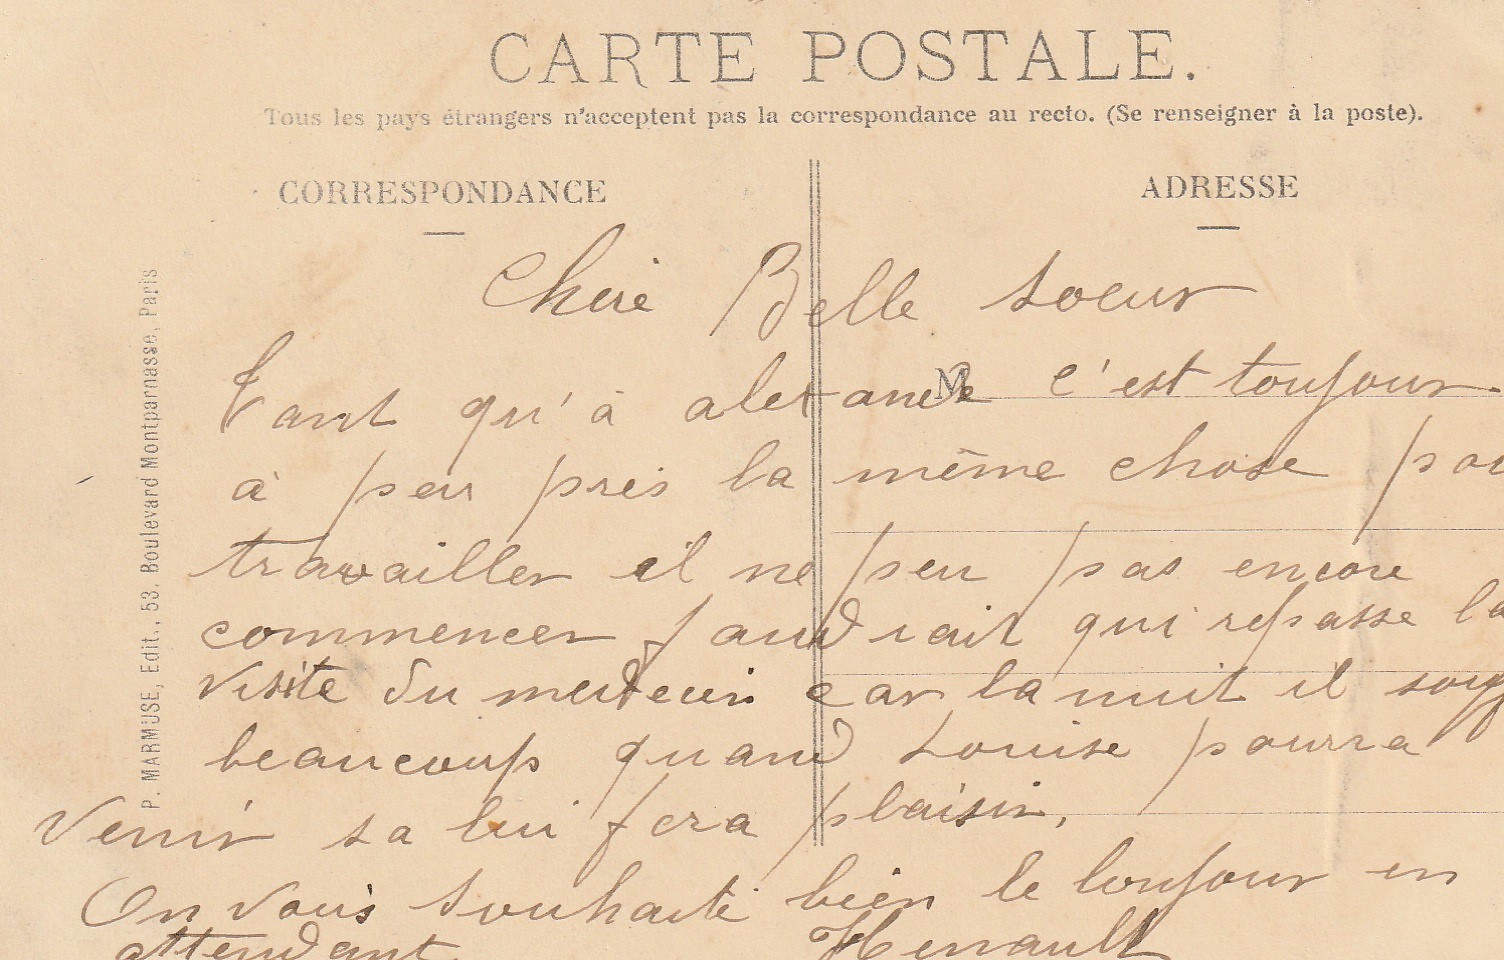 CARTE POSTALE.
Tous les pays étrangers n'acceptent pas la correspondance au recto. (Se renseigner à la poste).
CORRESPONDANCE
ADRESSE
P. MARMUSE, Edit., 53, Boulevard Montparnasse, Paris
Chere Belle soeur
Tant qu'à alexandre c'est toujour
M
à peu près la même chose pou
travailler il ne peu pas encore
commencer faudrait qui repasse la
visite du medecin car la nuit il
beaucoup quand Louise pourra
venir sa lui fera plaisir,
On vous souhaite bien le bonjour en
attendant Henault